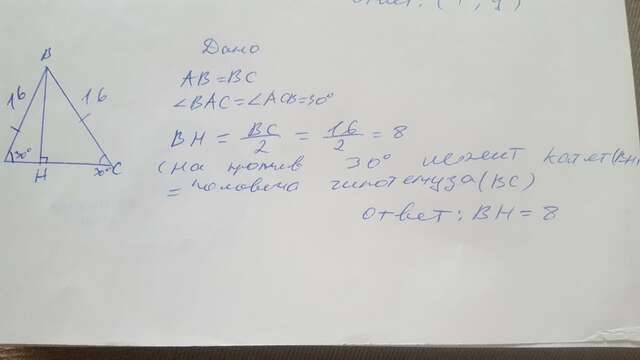 Ответ: (
Дано
B
16
16
AB = BC
∠BAC = ∠ACB = 30°
BH = BC/2 = 16/2 = 8
30°
H
30°
C
(На против 30° лежит катет (BH)
= половина гипотенуза (BC)
Ответ: BH = 8